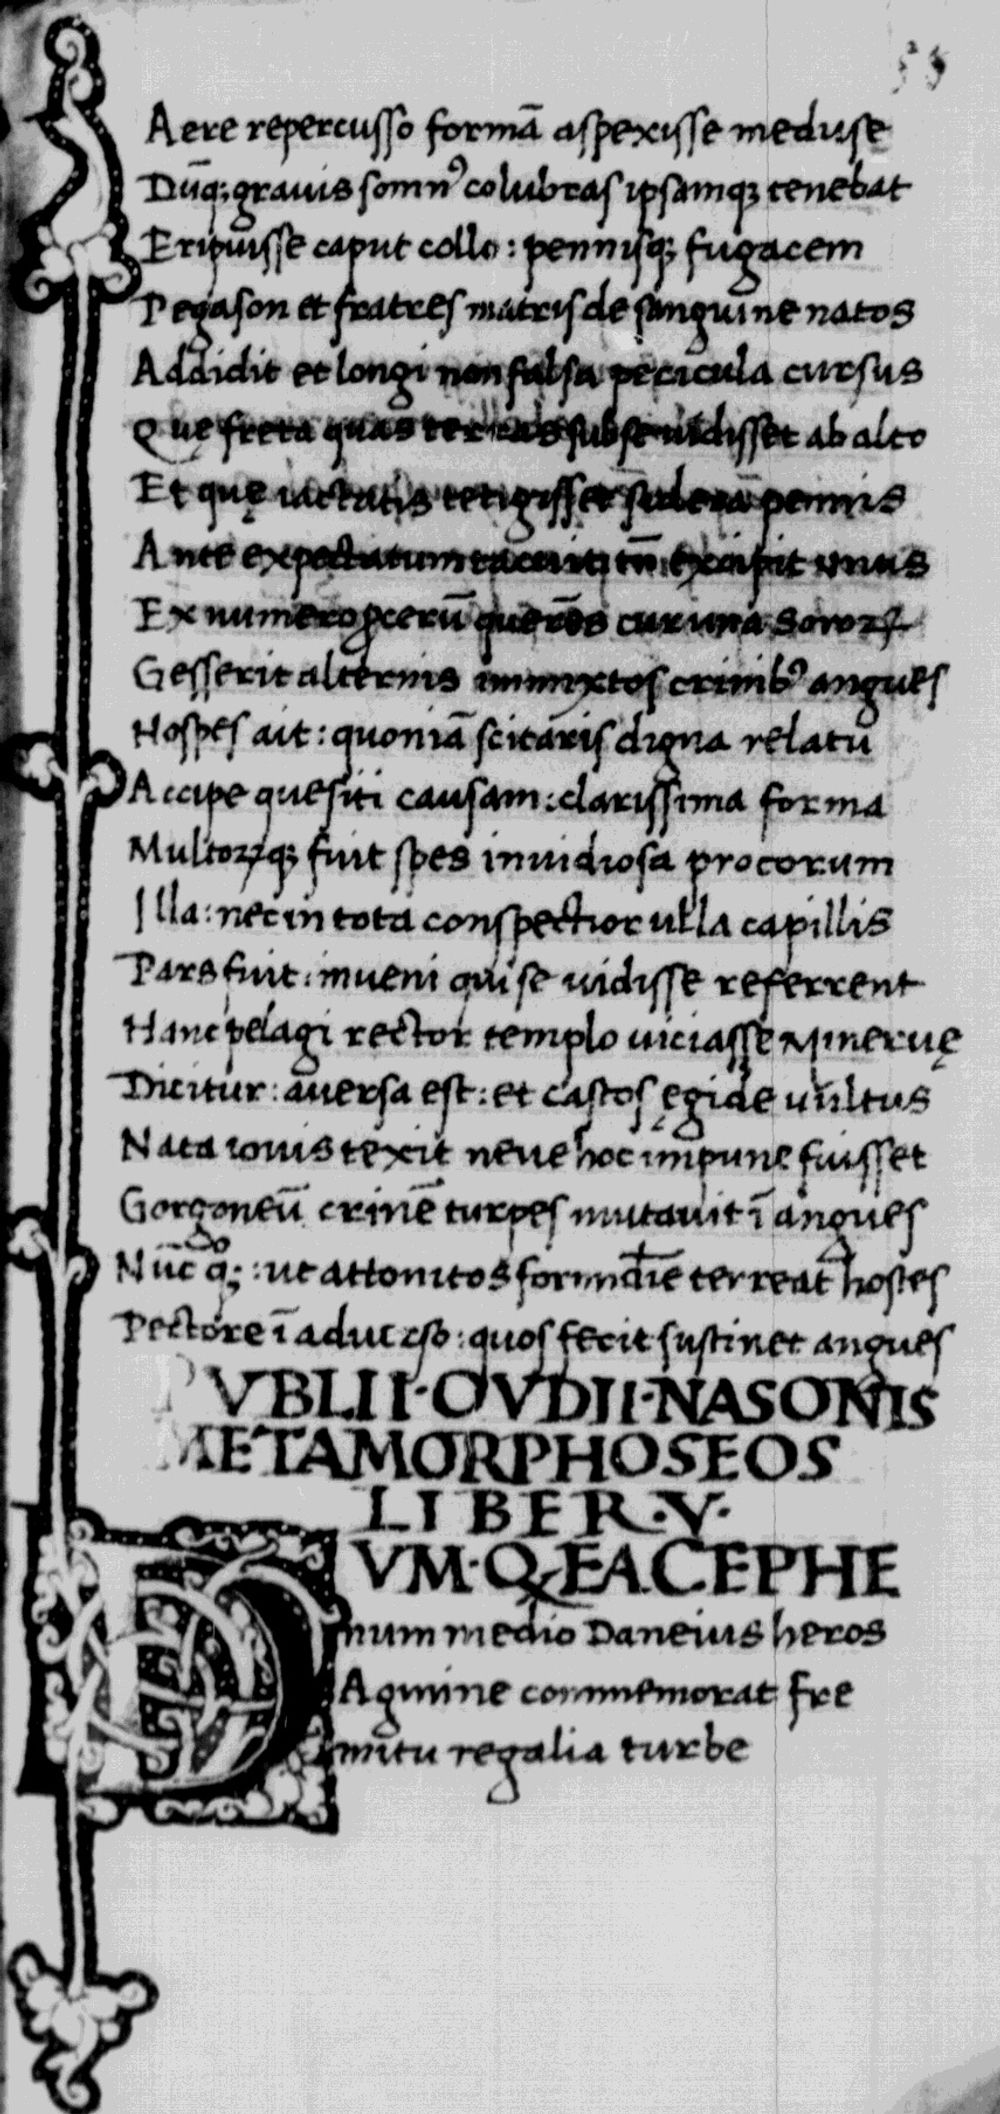 55
Aere repercusso formā aspexisse meduse
Dūq; grauis somnꝰ colubras ipsamq; tenebat
Eripuisse caput collo: pennisq; fugacem
Pegason et fratres matris de sanguine natos
Addidit et longi non falsa pericula cursus
Que freta quas terras sub se uidisset ab alto
Et quę iactatis tetigisset sidera pennis
Ante expectatum tacuit; tn̄ excipit unus
Ex numero ꝓcerū querēs cur una sororꝝ
Gesserit alternis immixtos crinibꝰ angues
Hospes ait: quoniā scitaris digna relatu
Accipe quesiti causam: clarissima forma
Multorꝝq; fuit spes inuidiosa procorum
Illa: nec in tota conspectior ulla capillis
Pars fuit: inueni qui se uidisse referrent
Hanc pelagi rector templo uiciasse Mineruę
Dicitur: auersa est: et castos ęgide uultus
Nata iouis texit neue hoc impune fuisset
Gorgoneū crinē turpes mutauit ī angues
Nūc qͦ;: ut attonitos formidīe terreat hostes
Pectore ī aduerso: quos fecit sustinet angues
PVBLII·OVDII·NASONIS
METAMORPHOSEOS
LIBER·V·
DVM·Q·EA CEPHE
num medio Daneius heros
Agmine commemorat fre
mitu regalia turbe